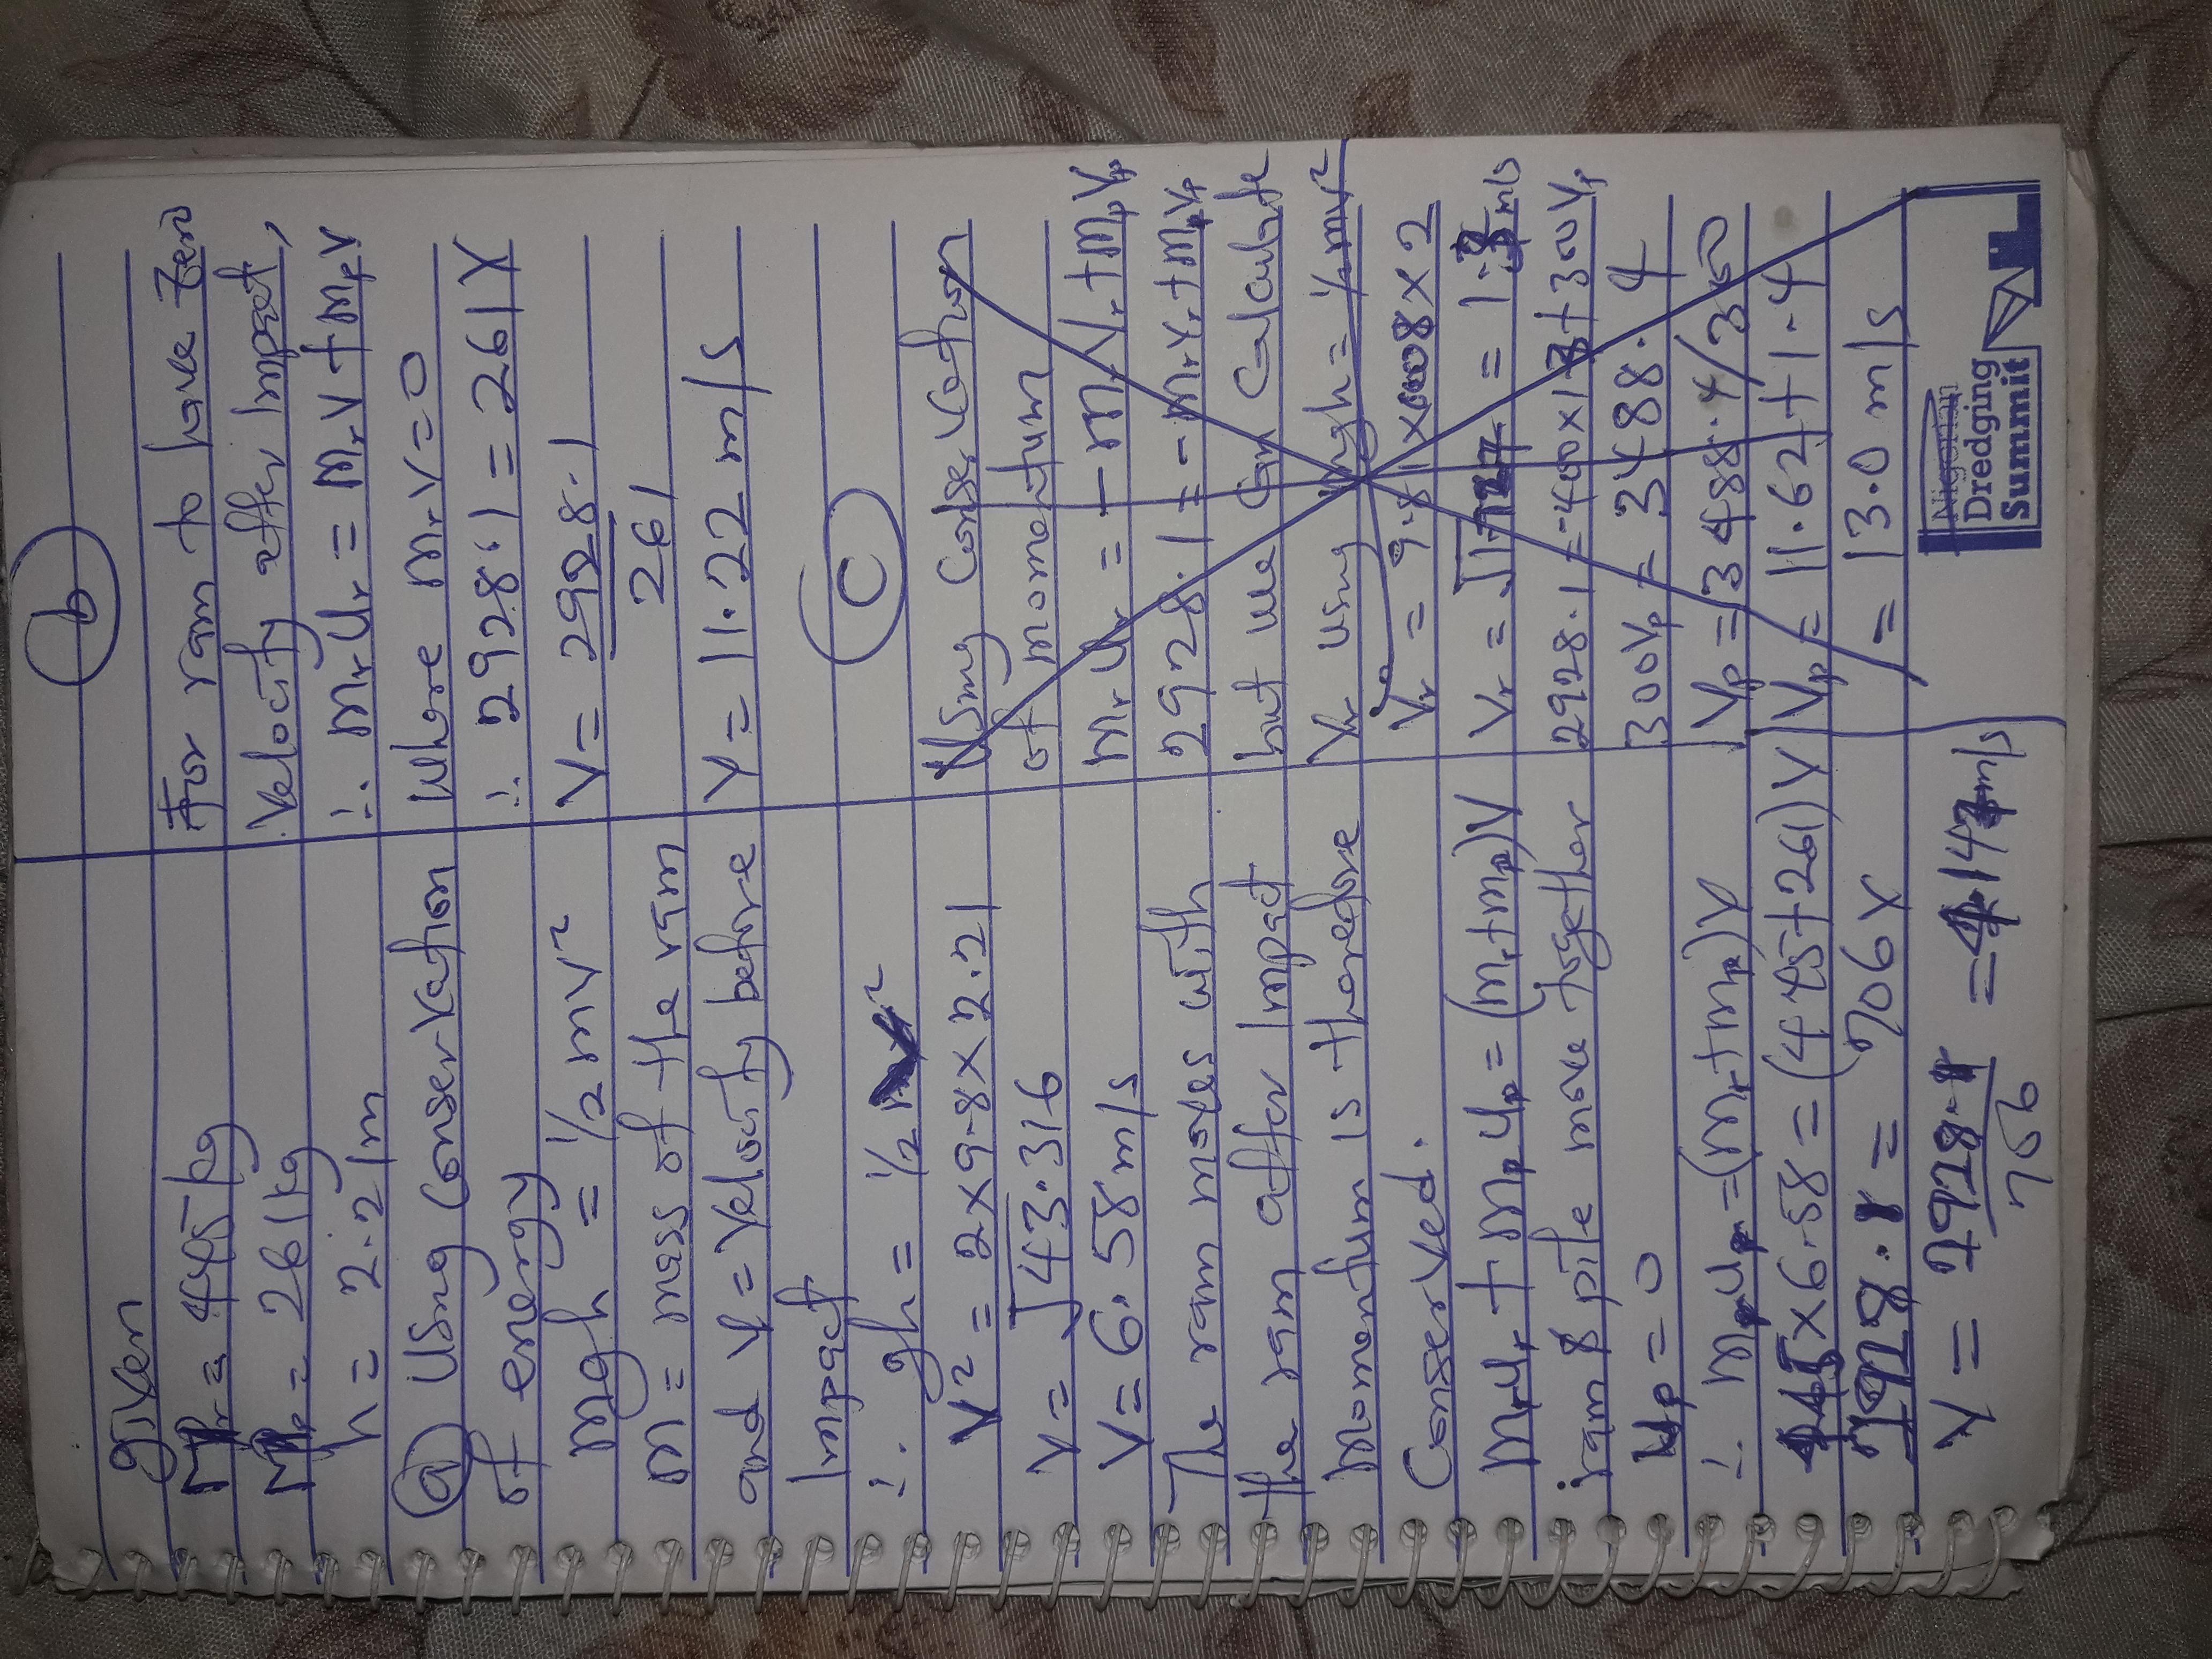 given
Mr = 445kg
Mp = 261kg
h = 2.21m
(a) Using Conservation
of energy
mgh = 1/2 mv²
m = mass of the ram
and v = velocity before
Impact
∴ gh = 1/2 v²
v² = 2×9.8×2.21
v = √43.316
v = 6.58 m/s
The ram moves with
the ram after Impact
Momentum is therefore
Conserved.
MrUr + MpUp = (mr+mp)V
ram & pile move together
Up = 0
∴ = (mr+mp)V
445×6.58 = (445+261)V
2928.1 = 706V
V = 2928.1 = 4.147m/s
706
(b)
For ram to have Zero
Velocity after Impact,
∴ MrUr = MrV + MpV
Where MrV = 0
∴ 2928.1 = 261V
V = 2928.1
261
V = 11.22 m/s
(c)
Using Conservation
of momentum
MrUr = -MrVr + MpVp
2928.1 = -MrVr + MpVp
but we can Calculate
Vr using mgh = 1/2mv²
Vr² = 9.81× ×2
Vr = = m/s
2928.1 = + 300Vp
300Vp = 3488.4
Vp = 3488.4/300
Vp = 11.62 + 1.4
= 13.0 m/s
Nigerian
Dredging
Summit